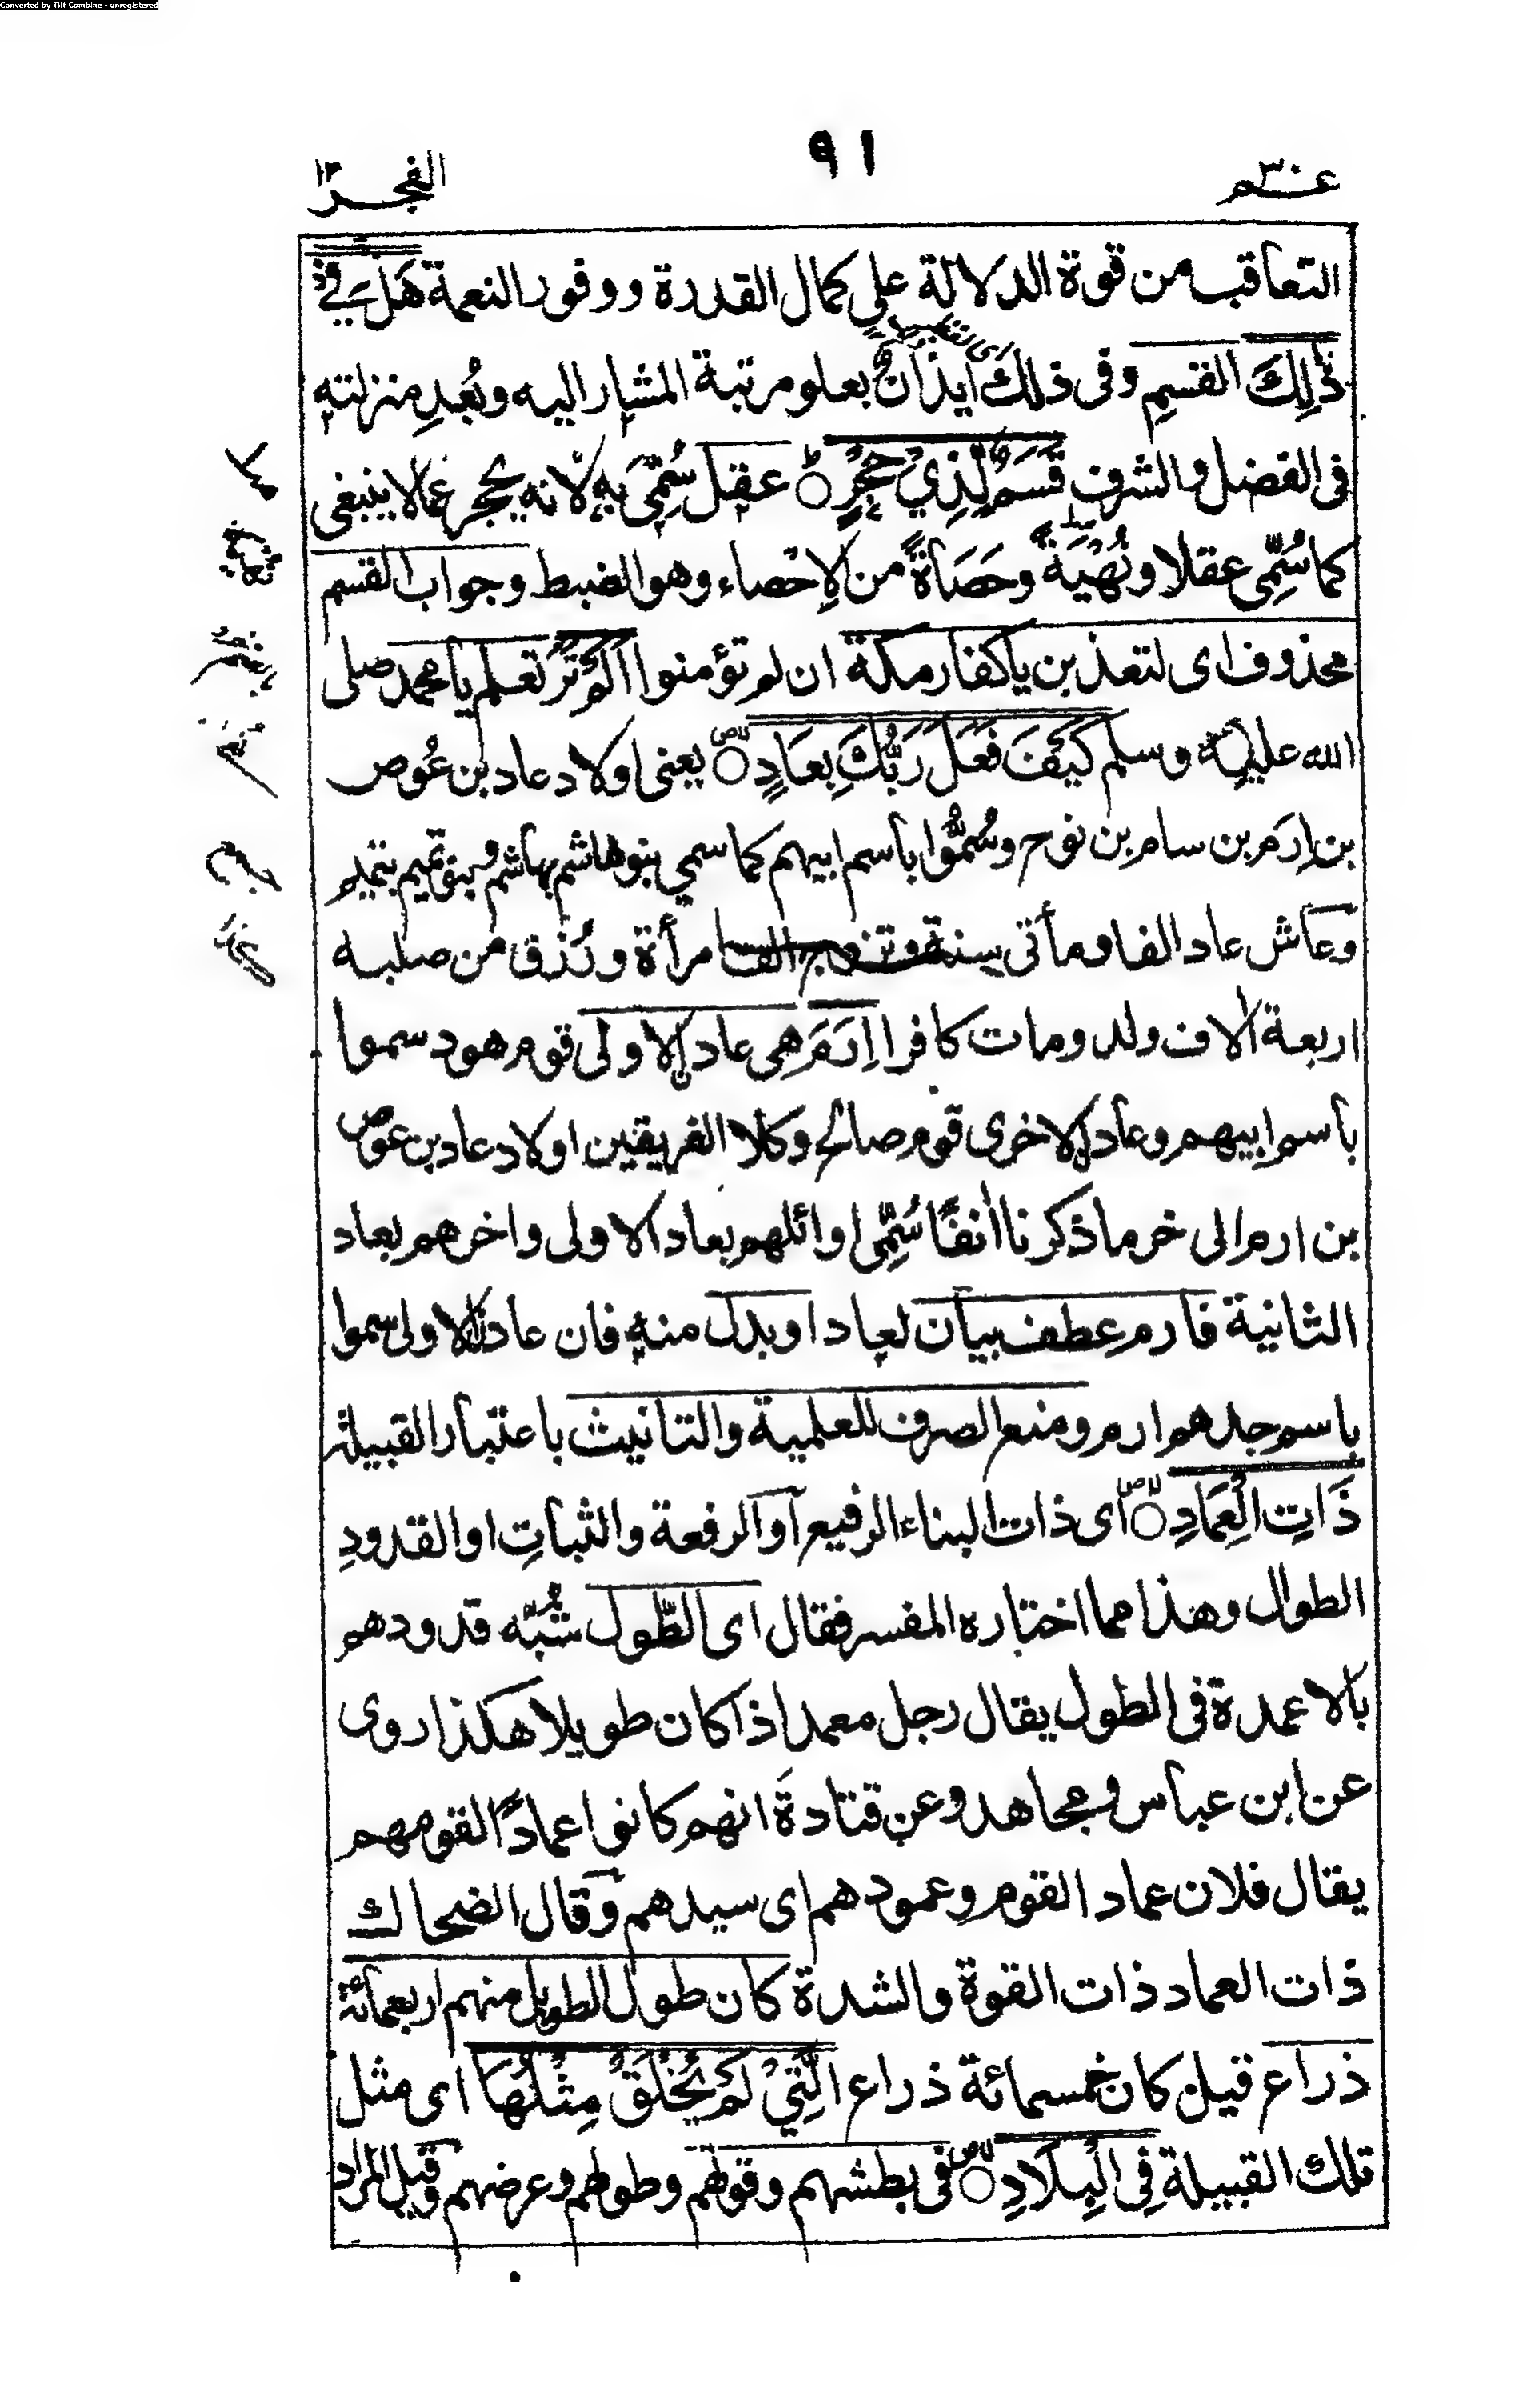 Converted by Tiff Combine - unregistered
عم ٣٠
٩١
الفجر
التعاقب من قوة الدلالة على كمال القدرة ووفور النعمة هَلْ فِيْ
ذٰلِكَ القسمِ وفى ذلك ايذانٌ بعلو مرتبة المشار اليه وبُعدِ منزلته
فى الفضل والشرف قَسَمٌ لِّذِيْ حِجْرٍ عقل سُمِّى به لانه يحجر عمالا ينبغى
كما سُمِّى عقلا ونُهْيَةً وحَصَاةً من الاِحْصاء وهو الضبط وجواب القسم
محذوف اى لتعذبن ياكفار مكة ان لم تؤمنوا اَلَمْ تَرَ تعلم يا محمد صلى
الله عليه وسلم كَيْفَ فَعَلَ رَبُّكَ بِعَادٍ يعنى اولاد عاد بن عُوص
بن اِرَم بن سام بن نوح وسُمُّوا باسم ابيهم كما سمي بنو هاشم بهاشم وبنو تميم بتميم
وعاش عاد الفا ومأتى سنة وتزوج الف امرأة ورُزق من صلبه
اربعة الاف ولد ومات كافرا اِرَمَ هى عاد الاولى قوم هود سموا
باسم ابيهم وعاد الاخرى قوم صالح وكلا الفريقين اولاد عاد بن عوص
بن ارم الى خر ما ذكرنا اٰنفًا سُمِّى اوائلهم بعاد الاولى واخرهم بعاد
الثانية فارم عطف بيان لعاد او بدل منه فان عاد الاولى سموا
باسم جدهم ارم ومنع الصرف للعلمية والتانيث باعتبار القبيلة
ذَاتِ الْعِمَادِ اى ذات البناء الرفيع او الرفعة والثباتِ او القدودِ
الطوال وهذا مما اختاره المفسر فقال اى الطّول شُبّه قدودهم
بالاعمدة فى الطول يقال رجل معمد اذا كان طويلا هكذا روى
عن ابن عباس ومجاهد وعن قتادةَ انهم كانوا عمادًا لقومهم
يقال فلان عماد القوم وعمودهم اى سيدهم وقال الضحاك
ذات العماد ذات القوة والشدة كان طول الطويل منهم اربعمائة
ذراع قيل كان خمسمائة ذراع الَّتِيْ لَمْ يُخْلَقْ مِثْلُهَا اى مثل
تلك القبيلة فِى الْبِلَادِ فى بطشهم وقوتهم وطولهم وعرضهم وقيل المراد